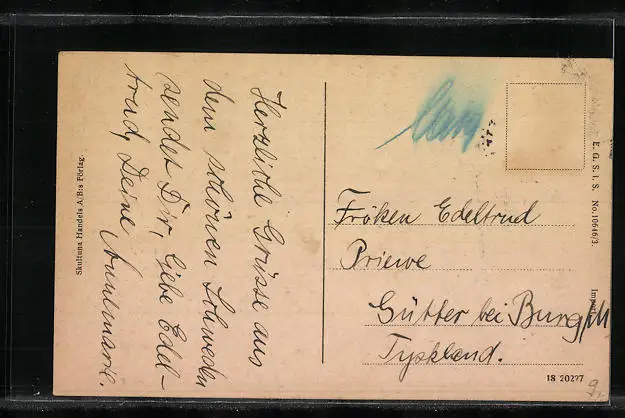 Herzliche Grüsse aus
dem schönen Schweden
sendet Dir, liebe Edel-
trud, Deine
Skultuna Handels A/B:s Förlag.
Fröken Edeltrud
Priewe
Gütter bei Burg/M
Tyskland.
E. G. S. I. S. No. 10646/3.
18 20227
9,